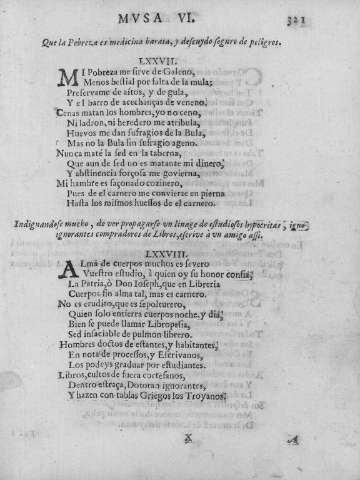 MVSA VI. 321
Que la Pobreza es medicina barata, y descuydo seguro de peligros.
LXXVII.
MI Pobreza me sirve de Galeno,
Menos bestial por falta de la mula;
Preservame de aítos, y de gula,
Y el barro de acechanças de veneno.
Cenas matan los hombres, yo no ceno,
Ni ladron, ni heredero me atribula,
Huevos me dan sufragios de la Bula,
Mas no la Bula sin sufragio ageno.
Nunca maté la sed en la taberna,
Que aun de sed no es matante mi dinero,
Y abstinencia forçosa me govierna,
Mi hambre es saçonado cozinero,
Pues de el carnero me convierte en pierna
Hasta los mismos huessos de el carnero.
Indignandose mucho, de ver propagarse un linage de estudiosos hypocritas, igno-
ignorantes compradores de Libros, escrive à un amigo assi.
LXXVIII.
ALma de cuerpos muchos es severo
Vuestro estudio, à quien oy su honor confia;
La Patria, ò Don Ioseph, que en Libreria
Cuerpos sin alma tal, mas es carnero.
No es erudito, que es sepolturero,
Quien solo entierra cuerpos noche, y dia,
Bien se puede llamar Libropesia,
Sed insaciable de pulmon librero.
Hombres doctos de estantes, y habitantes,
En nota de processos, y Escrivanos,
Los podeys graduar por estudiantes.
Libros, cultos de fuera cortesanos,
Dentro estraça, Dotoran ignorantes,
Y hazen con tablas Griegos los Troyanos;
X A